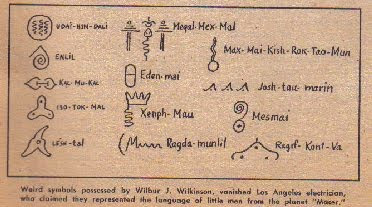 UDAI-HIN-DALI
ENLIL
KAL-MU-KAL
ISO-TOK-MAL
LESH-tal
Mopal-Mex-Mal
Eden-mai
Xenph-Mau
Ragda-munlil
Max-Mai-Kish-Rok-Tao-Mun
Josh-tau-marin
Mesmai
Regil-Kont-Va
Weird symbols possessed by Wilbur J. Wilkinson, vanished Los Angeles electrician,
who claimed they represented the language of little men from the planet "Maser."